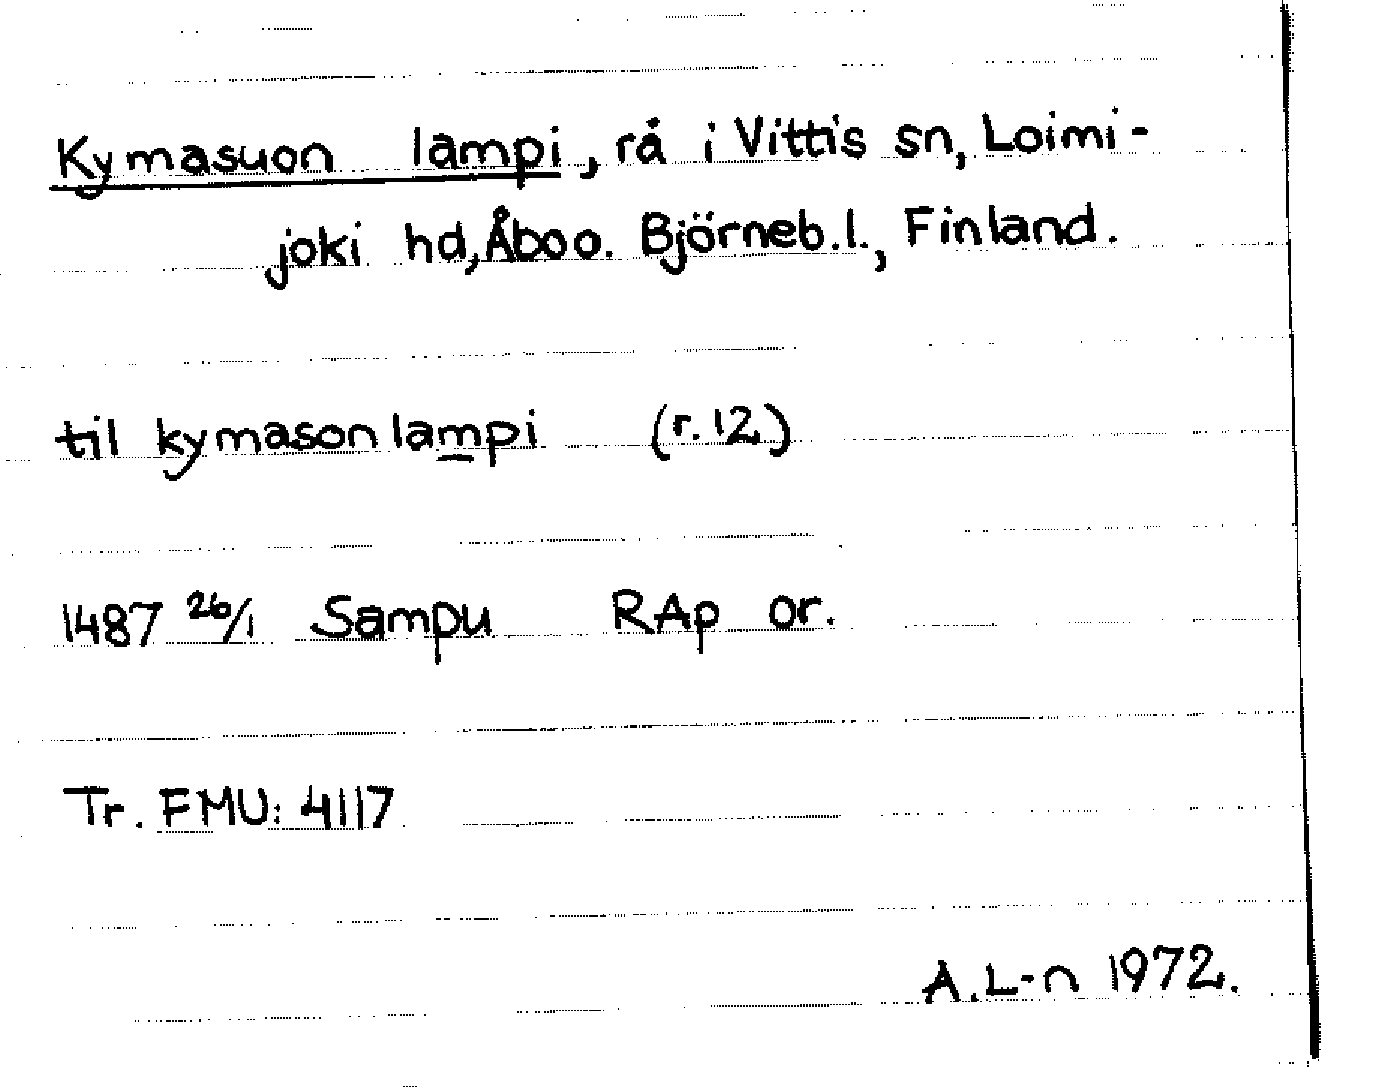 Kymasuon lampi, rå i Vittis sn, Loimi-
joki hd, Åbo o. Björneb. l., Finland.
til kymason lampi (r. 12)
1487 26/1 Sampu RAp or.
Tr. FMU: 4117
A. L-n 1972.